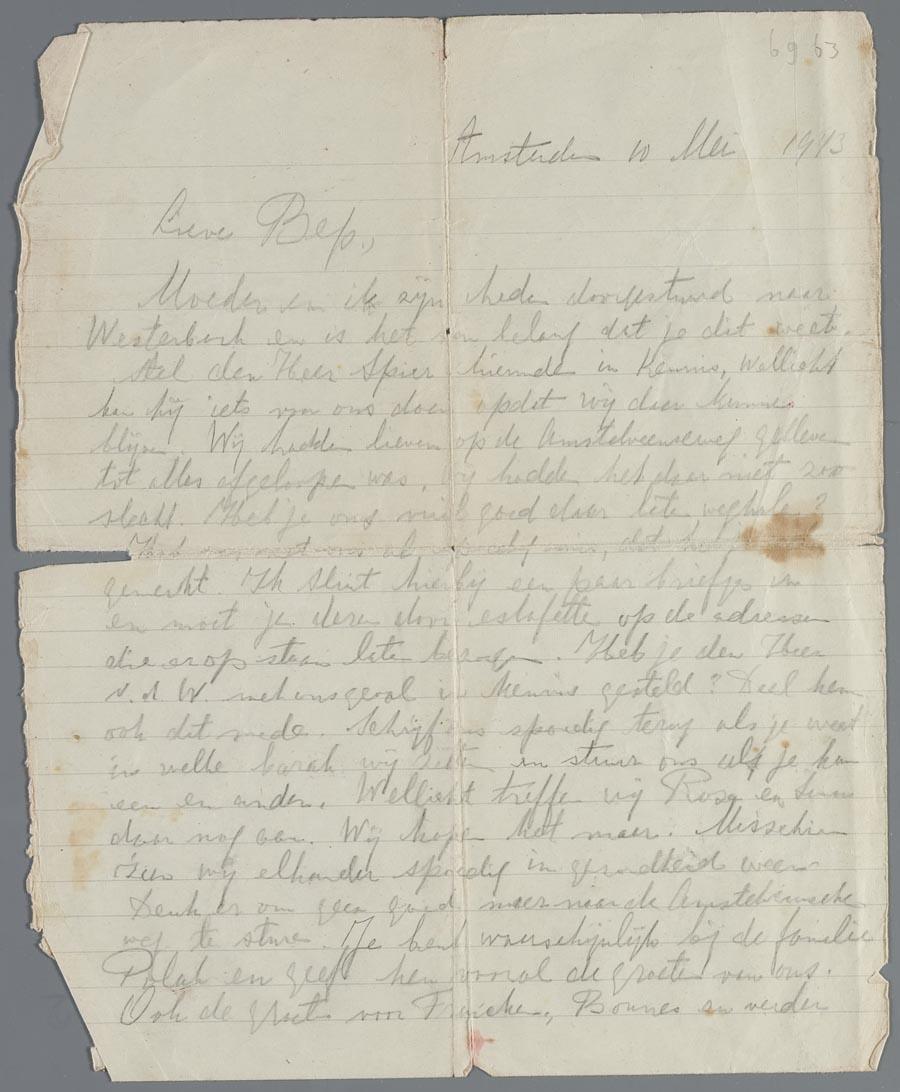 69 63
Amsterdam 10 Mei 1943
Lieve Bep,
Moeder en ik zijn heden doorgestuurd naar
Westerbork en is het van belang dat je dit weet.
Stel den Heer Spier hiermede in kennis, wellicht
kan hij iets van ons doen opdat wij daar kunnen
blijven. Wij hadden liever op de Amstelveenseweg gebleven
tot alles afgeloopen was, wij hadden het daar niet zoo
slecht. Heb je ons goed daar laten weghalen?
dat heb je
gemerkt. Ik sluit hierbij een paar briefjes in
en moet je deze door estafette op de adressen
die erop staan laten bezorgen. Heb je den Heer
v. d W. met ons geval in kennis gesteld? Deel hem
ook dit mede. Schrijf ons spoedig terug als je weet
in welke barak wij zitten en stuur ons als je kan
een en ander. Wellicht treffen wij Rosa en
daar nog aan. Wij hopen het maar. Misschien
zien wij elkander spoedig in gezondheid weer.
Denk er om geen goed meer naar de Amstelveensche
weg te sturen. Je bent waarschijnlijk bij de familie
Polak en geef hen vooral de groeten van ons.
Ook de groeten voor en verder